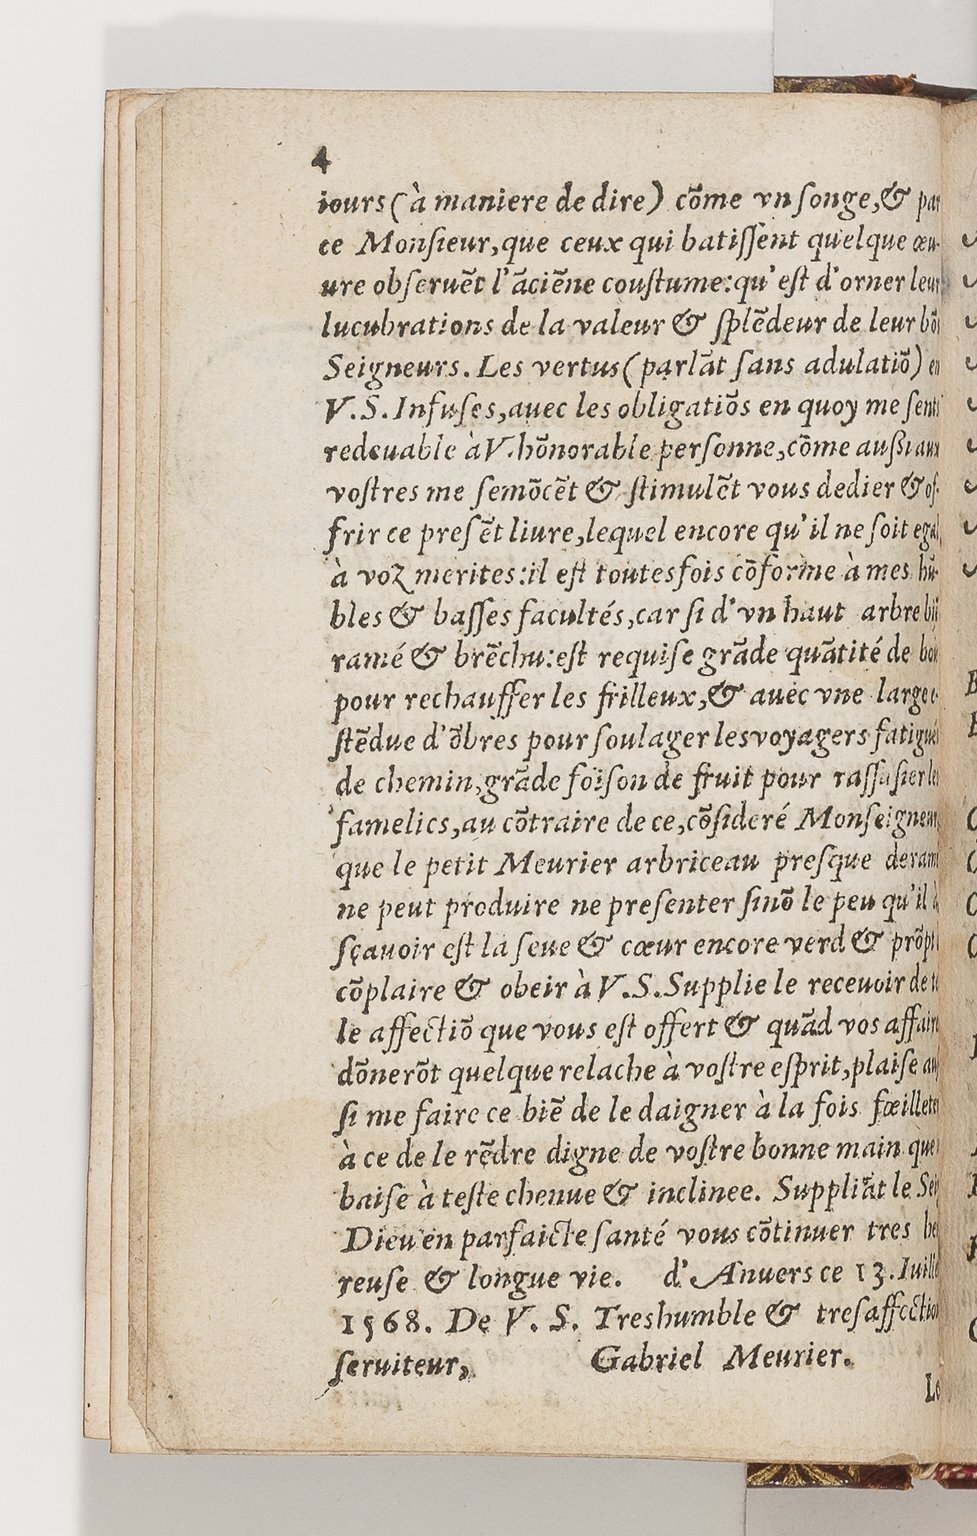 4
iours (à maniere de dire) cõme vn ſonge, & par
ce Monſieur, que ceux qui batiſſent quelque œu-
ure obſeruẽt l'ãciẽne couſtume: qu'eſt d'orner leur
lucubrations de la valeur & ſplẽdeur de leur bõs
Seigneurs. Les vertus (parlãt ſans adulatiõ) en
V.S. Infuſes, auec les obligatiõs en quoy me ſenti
redeuable à V. hõnorable perſonne, cõme auſsi aux
voſtres me ſemõcẽt & ſtimulẽt vous dedier & of-
frir ce preſẽt liure, lequel encore qu'il ne ſoit egal
à voz merites: il eſt toutesfois cõforme à mes hũ-
bles & baſſes facultés, car ſi d'vn haut arbre
ramé & brẽchu: eſt requiſe grãde quãtité de bois
pour rechauffer les frilleux, & auec vne large e-
ſtẽdue d'õbres pour ſoulager les voyagers fatigués
de chemin, grãde foiſon de fruit pour raſſaſier les
famelics, au cõtraire de ce, cõſideré Monſeigneur,
que le petit Meurier arbriceau preſque deramé
ne peut produire ne preſenter ſinõ le peu qu'il à
ſçauoir eſt la ſeue & cœur encore verd & prõpt
cõplaire & obeir à V.S. Supplie le receuoir de
le affectiõ que vous eſt offert & quãd vos affaires
dõnerõt quelque relache à voſtre eſprit, plaiſe auſ
ſi me faire ce biẽ de le daigner à la fois fœilleter
à ce de le rẽdre digne de voſtre bonne main que
baiſe à teſte chenue & inclinee. Suppliãt le Sei
Dieu en parfaicte ſanté vous cõtinuer tres heu
reuſe & longue vie. d'Anuers ce 13. Iuillet
1568. De V. S. Treshumble & treſaffection
ſeruiteur, Gabriel Meurier.